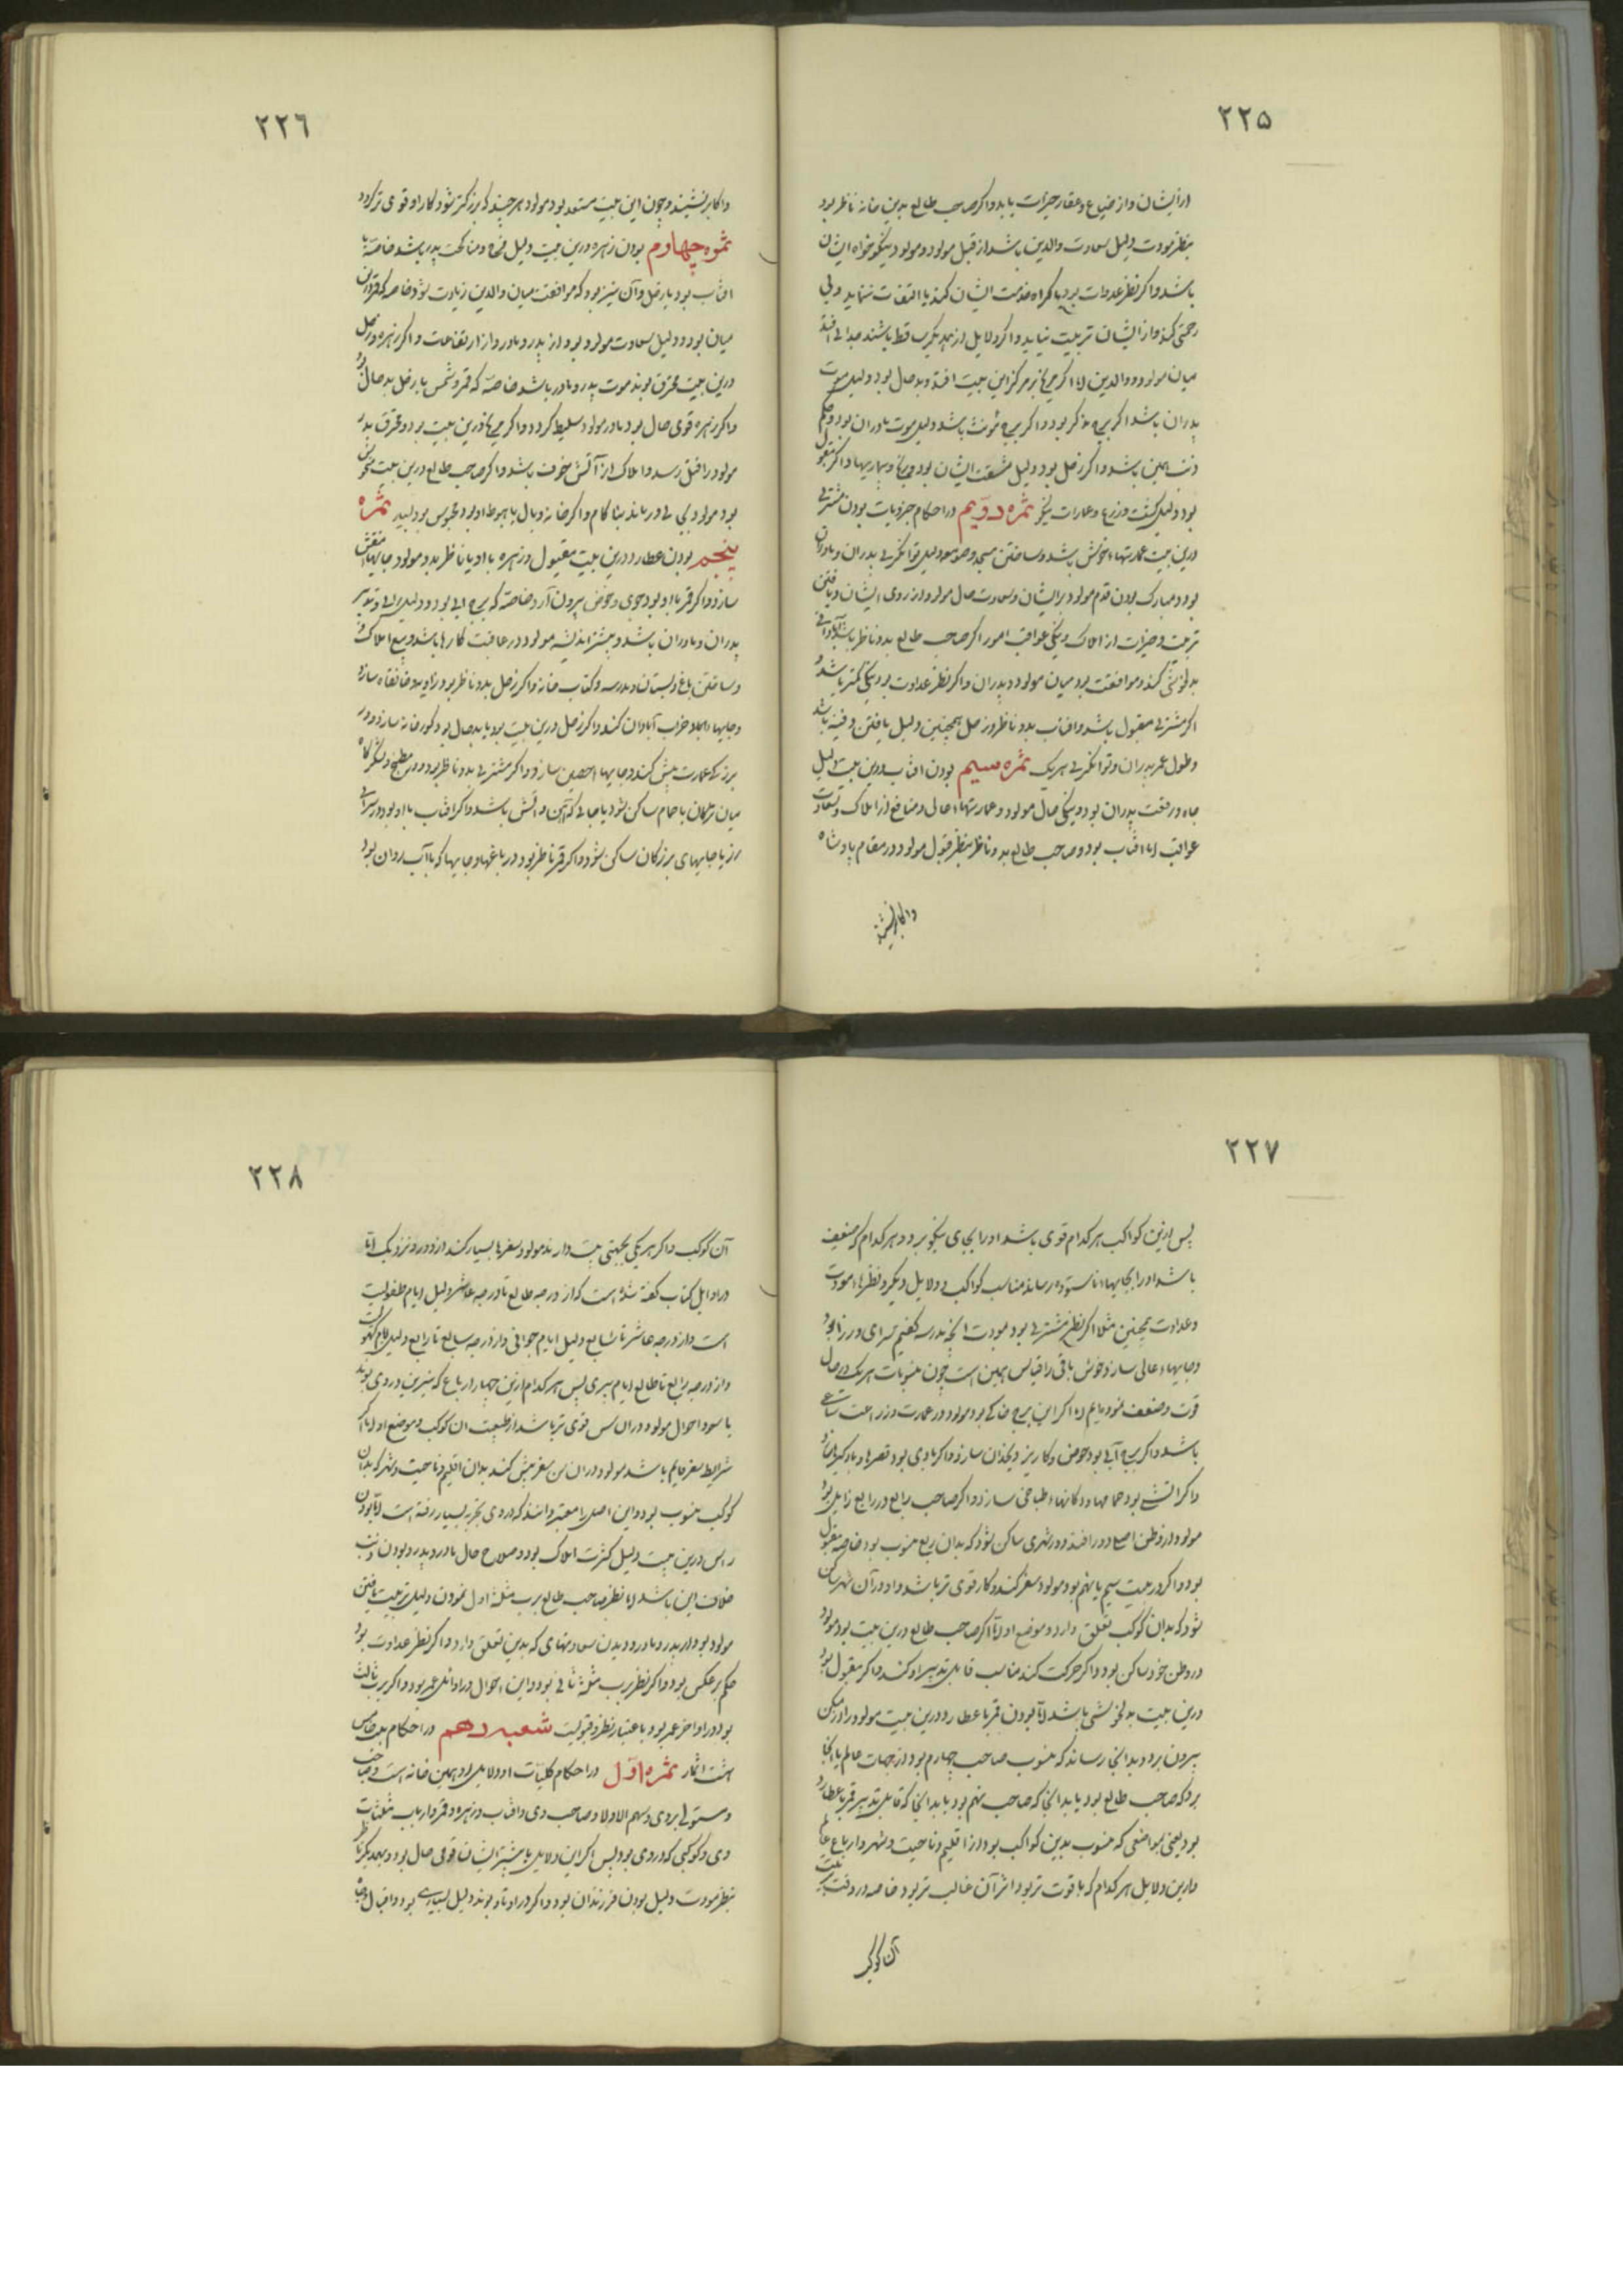 ۲۲۵
ازایشان واز ضیاع وعقار خیرات یابد واکر صاحب طالع بدین خانه ناظر بود
بنظر مودت دلیل سعادت والدین باشد از قبل مولود ومولود نیکو خواه ایشان
باشد واکر نظر عداوت بود باکراه خدمت ایشان کند یا التفات ننماید وبی
رحمتی کند واز ایشان تربیت نیابد واکر دلایل از یکدیکر ساقط باشند جدایی افتد
میان مولود ووالدین اما اکر مریخ بر مرکز این بیت افتد وبد حال بود دلیل موت
پدران باشد اکر برج مذکر بود واکر برج مؤنث باشد دلیل موت مادران بود وحکم
ذنب همین باشد واکر زحل بود دلیل مشقت ایشان بود وبیماریها واکر مقبول
بود دلیل کشت وزرع وعمارات نیکو ثمره دویم در احکام جزویات بودن مشتری
درین بیت عمارتهاء خوش باشد وساختن مسجد وصومعه دلیل توانکری پدران ومادران
بود ومبارک بودن قدم مولود بر ایشان وسعادت حال مولود از روی ایشان ویافتن
تربیت وخیرات از املاک ونیکی عواقب امور اکر صاحب طالع بدو ناظر باشد
کند وموافقت بود میان مولود وپدران واکر نظر عداوت بود نیکی کمتر باشد و
اکر مشتری مقبول باشد وافتاب بدو ناظر وزحل همچنین دلیل یافتن دفینه باشد
وطول عمر پدران وتوانکری هر یک ثمره سیم بودن افتاب درین بیت دلیل
جاه ورفعت پدران بود ونیکی حال مولود وعمارتهاء عالی ومنافع از املاک وسعادت
عواقب اما افتاب بود وصاحب طالع بدو ناظر بنظر قبول مولود در مقام پادشاه
واکابر نشیند
۲۲٦
واکابر نشیند وچون این بیت مستعد بود مولود هر چند که بزرکتر شود کار او قوی تر کردد
ثمره چهارم بودن زهره درین بیت دلیل نکاح ومناکحت پدر باشد خاصه با
افتاب بود یا زحل وآن نیز بود که موافقت میان والدین زیادت شود خاصه که قمر درین
میان بود ودلیل سعادت مولود بود از پدر ومادر واز ارتفاعات واکر زهره وزحل
درین بیت محترق بوند موت پدر ومادر باشد خاصه که قمر وشمس یا زحل بد حال بود
واکر زهره قوی حال بود مادر مولود سلیط کردد واکر مریخ درین بیت بود ومحترق پدر
مولود را قتل رسد واملاک از آتش خوف باشد واکر صاحب طالع درین بیت منحوس
بود مولود بی درماند بناکام واکر خانه وبال یا هبوط او بود محبوس بود لیبد ثمره
پنجم بودن عطارد درین بیت مقبول وزهره با او یا ناظر بدو مولود جایهاء منقش
سازد واکر قمر با او بود جوی وحوض بیرون آرد خاصه که برج آبی بود ودلیل رای وتدبیر
پدران ومادران باشد وبیشتر اندیشه مولود در عاقبت کارها باشد وبیع املاک
وساختن باغ وبستان ومدرسه وکتاب خانه واکر زحل بدو ناظر بود زاویه وخانقاه سازد
وجایهاء خراب آبادان کند واکر زحل درین بیت بود یا بد حال بود کورخانه سازد ودر
برزکی عمارت بیش کند وجایهاء حصین سازد واکر مشتری بدو ناظر بود در مطبخ ولشکرکاه
میان ترکمان یا حمام ساکن شود یا جایی که آهن وآتش باشد واکر افتاب با او بود در سرای
زر یا جایهای بزرکان ساکن شود واکر قمر ناظر بود در باغها وجایها که با آب روان بود
۲۲۷
پس ازین کواکب هر کدام قوی باشد اورا بجای نیکو برد وهر کدام که ضعیف
باشد اورا بجایهاء ناستوده رساند مناسب کواکب ودلایل دیکر ونظرهاء مودت
وعداوت همچنین مثلا اکر نظر مشتری بود مودت انجه مدرسه کفتیم سرای وزرا بود
وجایهاء عالی سازد وخوش باقی را قیاس همین است چون منسوبات هر یک در حال
قوت وضعف نموده ایم اما اکر این برج خاکی بود مولود در عمارت وزراعت ساعی
باشد واکر برج آبی بود حوض وکاریز ویخدان سازد واکر بادی بود قصرها وبادکیرها سازد
واکر آتشی بود حمامها ودکانهاء طباخی سازد واکر صاحب رابع در رابع زایل بود
مولود از وطن اصلی دور افتد ودر شهری ساکن شود که بدان ربع منسوب بود خاصه مقبول
بود واکر در بیت سیم یا نهم بود مولود سفر کند وکار قوی تر باشد واو در آن شهر ساکن
شود که بدان کوکب تعلق دارد وموضع او اما اکر صاحب طالع درین بیت بود مولود
در وطن خود ساکن بود واکر حرکت کند مناسب قابل تدبیر او کند واکر مقبول بود
درین بیت بدلخوشی باشد اما بودن قمر با عطارد درین بیت مولود را از مسکن
بیرون برد وبدانجا رساند که منسوب صاحب چهارم بود از جهات عالم یا آنجا
برد که صاحب طالع بود یا بدانجا که صاحب نهم بود یا بدانجا که قابل تدبیر قمر با عطارد
بود یعنی مواضعی که منسوب بدین کواکب بود از اقلیم وناحیت وشهر وارباع عالم
وازین دلایل هر کدام که با قوت تر بود اثر آن غالب تر بود خاصه در وقت تربیت
آن کوکب
۲۲۸
آن کوکب واکر هر یکی بجهتی بیت دارند مولود سفرها بسیار کند از دور ونزدیک اما
در اوایل کتاب کفته شده است که از درجه طالع تا درجه عاشر دلیل ایام طفولیت
است واز درجه عاشر تا سابع دلیل ایام جوانی واز درجه سابع تا رابع دلیل ایام کهولت
واز درجه رابع تا طالع ایام پیری پس هر کدام ازین چهار ارباع که نیرین در وی بوند
یا سعود احوال مولود در آن سن قوی تر باشد از طبیعت آن کوکب وموضع او اما اکر
شرایط سفر قایم باشد مولود در آن سن سفر بیش کند بدان اقلیم وناحیت وشهر که بدان
کوکب منسوب بود واین اصل را معتبر دانند که در وی تجربه بسیار رفته است اما بودن
راس درین بیت دلیل کثرت املاک بود وصلاح حال مادر وپدر وبودن ذنب
خلاف این باشد اما نظر صاحب طالع برب مثلثه اول نمودن دلیل تربیت یافتن
مولود بود از پدر ومادر ودیدن سعادتهای که بدین تعلق دارد واکر نظر عداوت بود
حکم بر عکس بود واکر نظر برب مثلثه ثانی بود واین احوال در اواسط عمر بود واکر برب ثالث
بود در اواخر عمر بود باعتبار نظر وقبولیت شعبه دهم در احکام بیت خامس
هشت اثمار ثمره اول در احکام کلیات او ودلایل او همین خانه است وصاحب
ومستولی بر وی وسهم الاولاد وصاحب وی وافتاب وزهره وقمر وارباب مثلثات
وی وکوکبی که در وی بود پس اکر این دلایل یا بیشتر ایشان قوی حال بود وبیکدیکر ناظر
بنظر مودت دلیل بودن فرزندان بود واکر در اوتاد بوند دلیل بسیاری بود واقبال وجاه